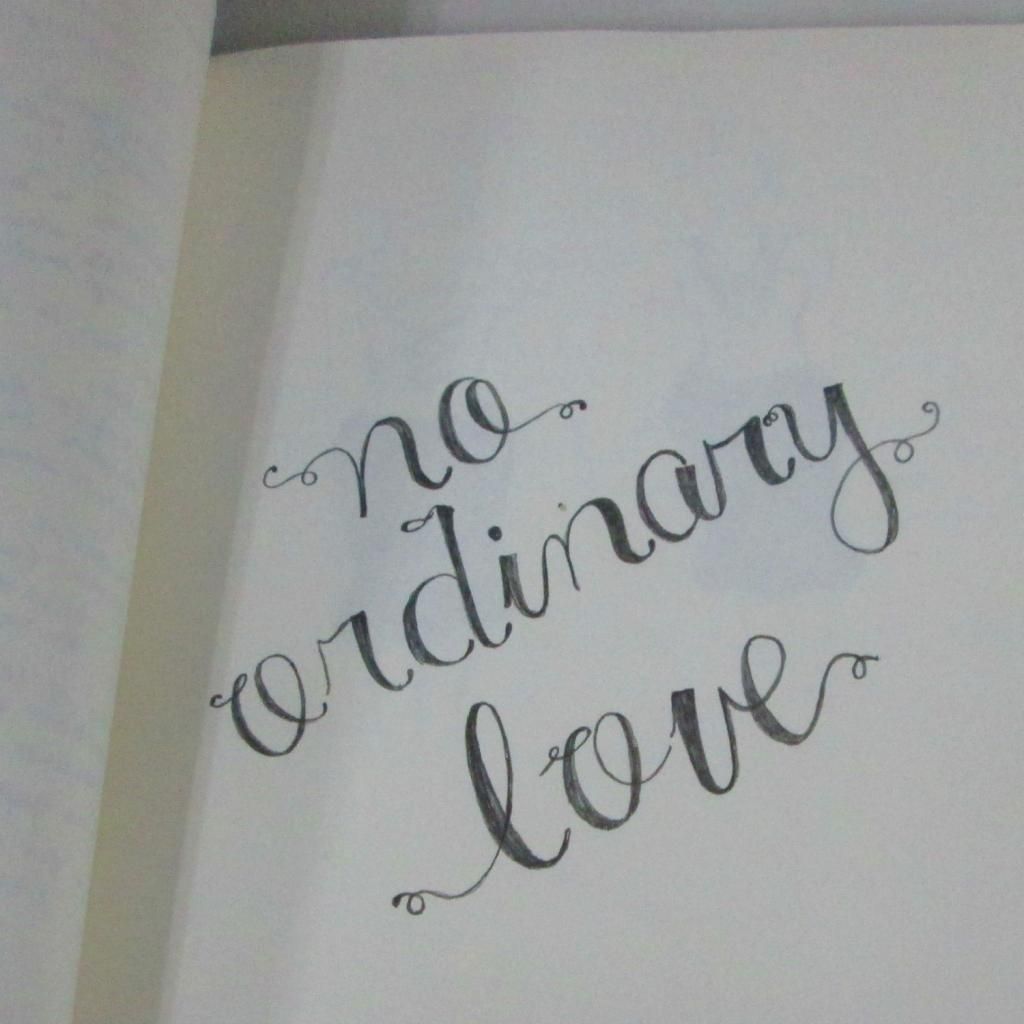 no
ordinary
love